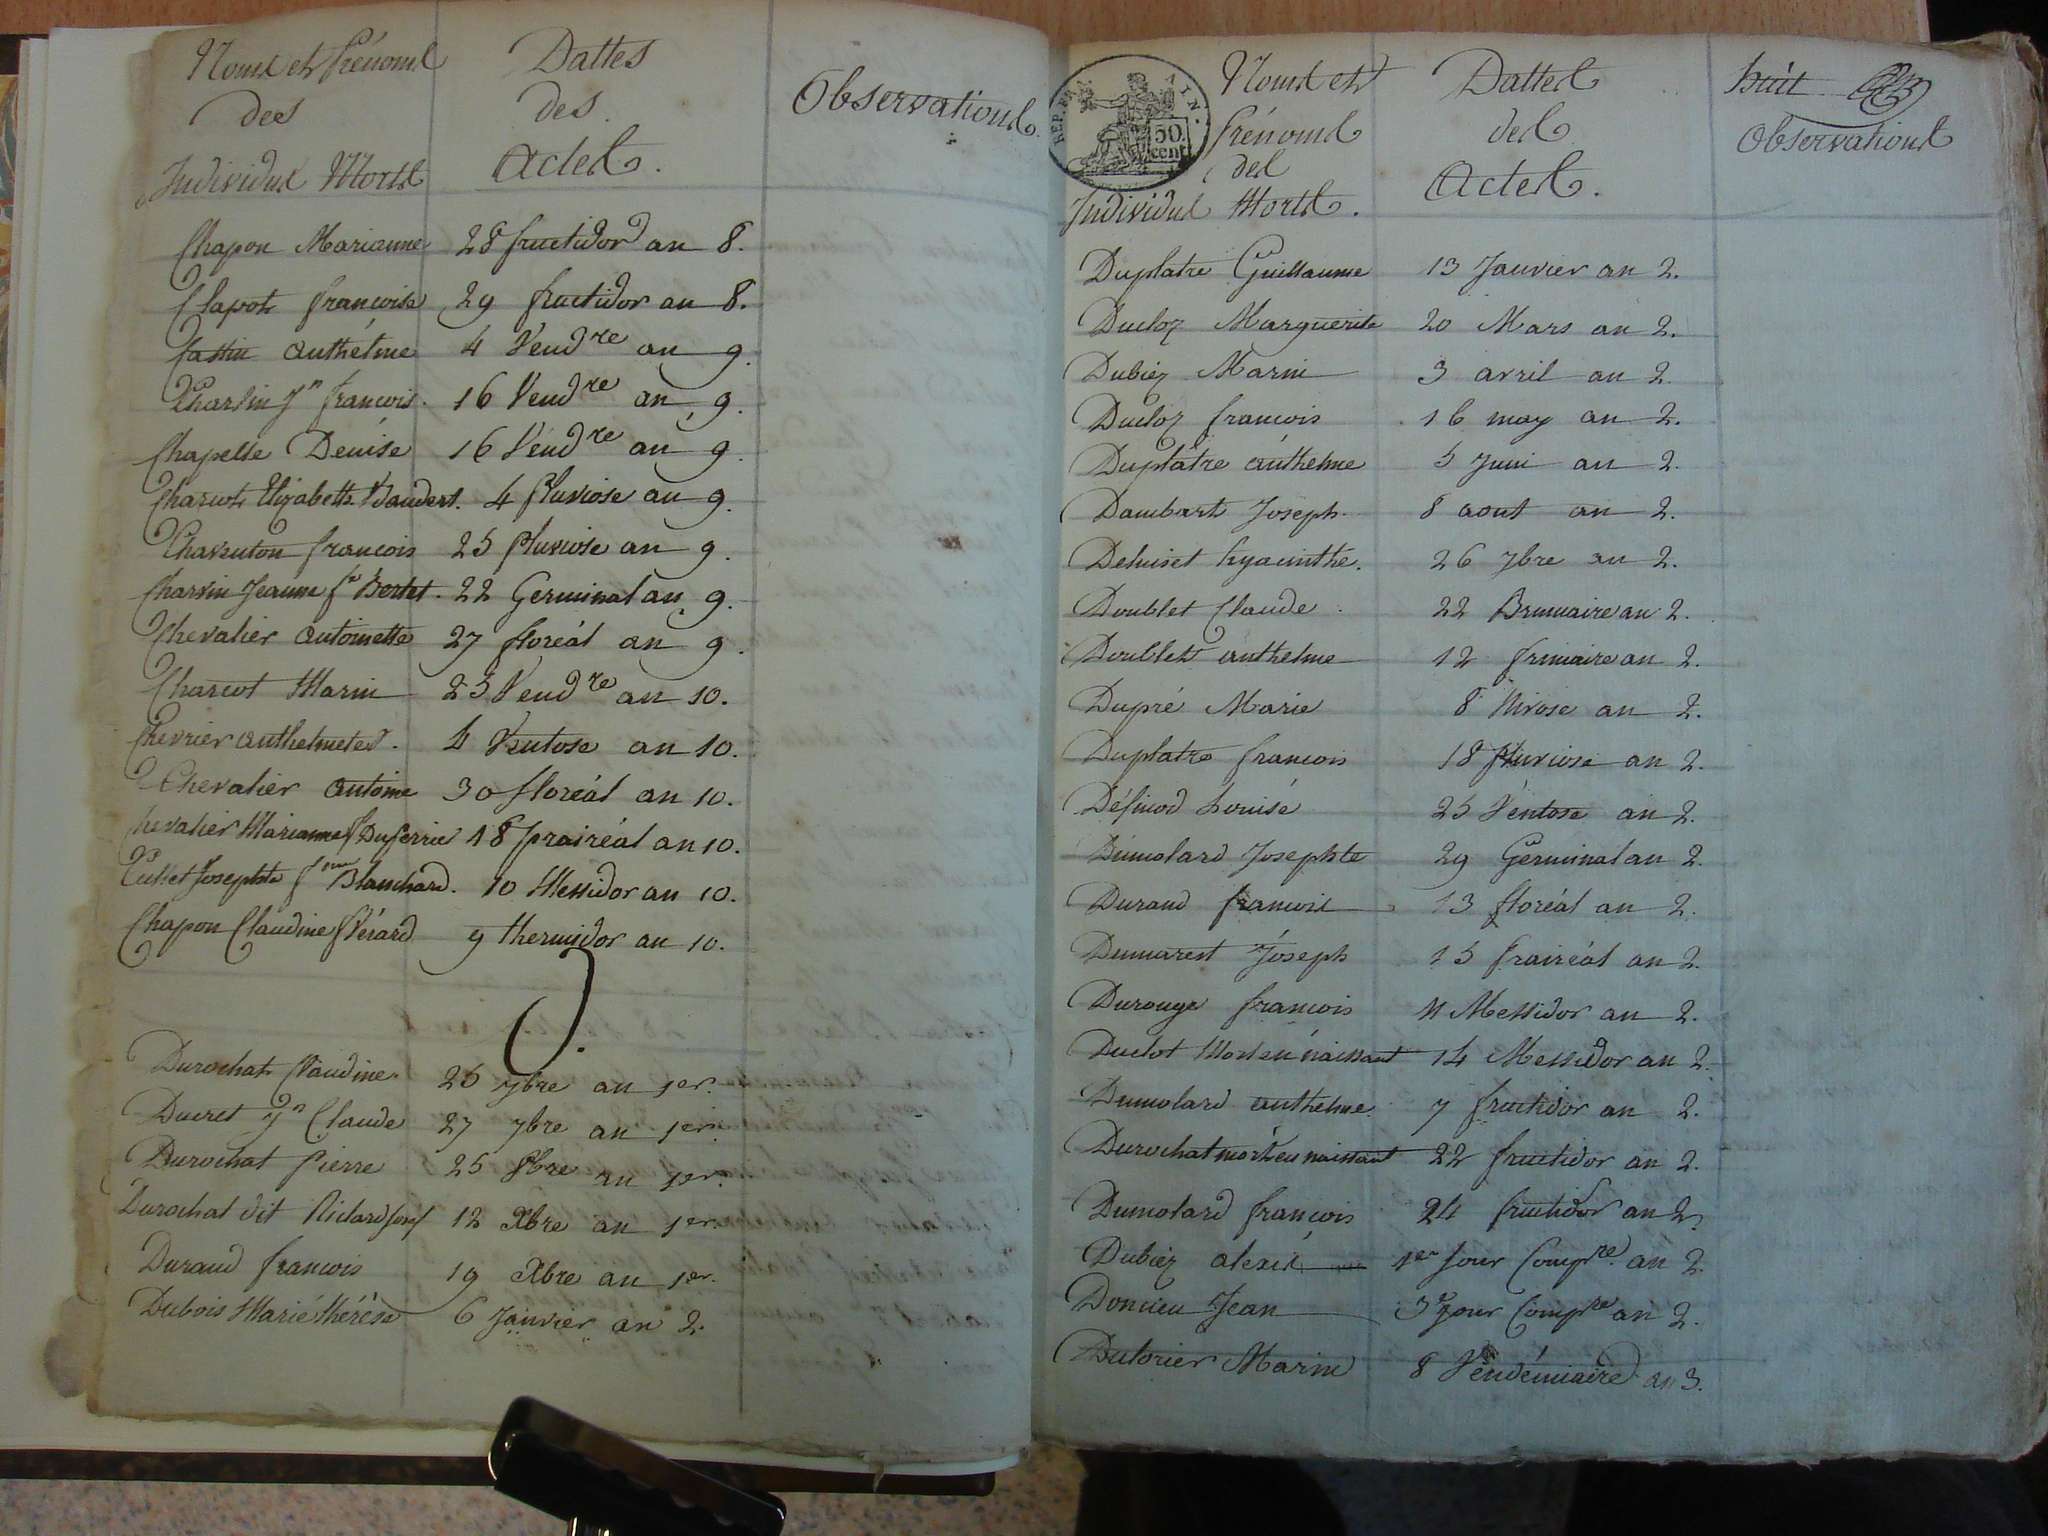 Noms et Prénoms
des
Individus Morts
Dattes
des
Actes.
Observations.
Chapon Marianne 28 fructidor an 8.
Clapot françoise 29 fructidor an 8.
Cassin anthelme 4 Vend.re an 9.
Charlin Jn françois. 16 Vend.re an 9.
Chapelle Denise 16 Vend.re an 9.
Charcot Elizabeth 4 Pluviose an 9.
françois 25 Pluviose an 9.
Charvin Jeanne fe Bertet. 22 Germinal an 9.
Chevalier antoinette 27 floréal an 9.
Charcot Marin 23 Vend.re an 10.
Chevrier anthelmete. 4 Ventose an 10.
Chevalier antoine 30 floréal an 10.
Chevalier Marianne f Duperrier 18 prairéal an 10.
Cullet Josephte f.me Blanchard. 10 Messidor an 10.
Chapon Claudine f Pérard 9 thermidor an 10.
D.
Durochat Claudine. 26 7bre an 1er.
Ducret Jn Claude 27 7bre an 1er.
Durochat Pierre 25 8bre an 1er.
Durochat dit Richard Josef 12 Xbre an 1er.
Durand françois 19 Xbre an 1er.
Dubois Marie thérèse 6 Janvier an 2.
REP. FRA. AIN.
50
cent
Noms et
Prénoms
des
Individus Morts.
Dattes
des
Actes.
huit
Observations
Duplatre Guillaume 13 Janvier an 2.
Ducloz Marguerite 20 Mars an 2.
Dubiez Marin 3 avril an 2.
Ducloz françois 16 may an 2.
Duplatre anthelme 5 Juin an 2.
Dambart Joseph. 8 aout an 2.
hyacinthe. 26 7bre an 2.
Doublet Claude 22 Brumaire an 2.
Doublet anthelme 12 frimaire an 2.
Dupré Marie 8 Nivose an 2.
Duplatre françois 18 Pluviose an 2.
Définod Louise 25 Ventose an 2.
Dumolard Josephte 29 Germinal an 2.
Durand françois 13 floréal an 2.
Dumarest Joseph 15 Prairéal an 2.
Durouge françois 11 Messidor an 2.
Duclot Mort en naissant 14 Messidor an 2.
Dumolard anthelme 7 fructidor an 2.
Durochat mort en naissant 22 fructidor an 2.
Dumolard françois 24 fructidor an 2.
Dubiez alexis 1er Jour Comp.re an 2.
Doncieu Jean 3e Jour Comp.re an 2.
Marin 8 Vendémiaire an 3.